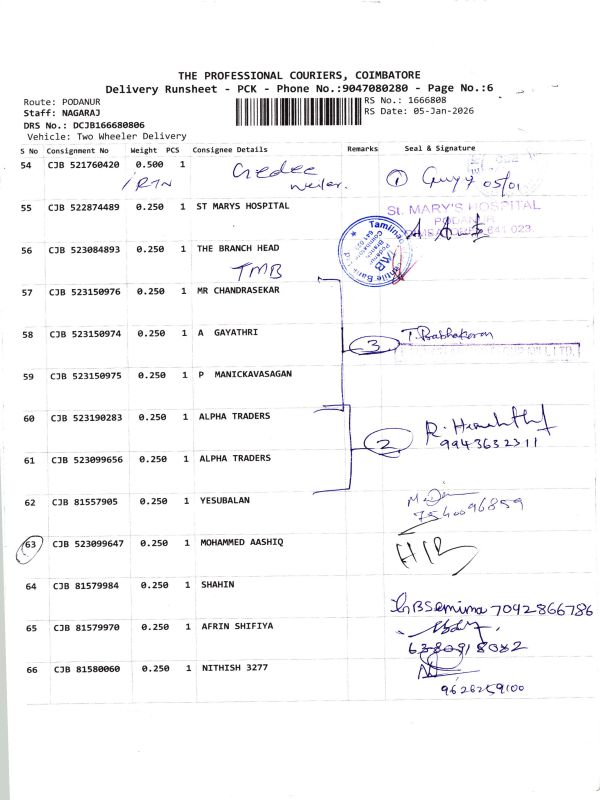 THE PROFESSIONAL COURIERS, COIMBATORE
Delivery Runsheet - PCK - Phone No.:9047080280 - Page No.:6
Route: PODANUR
RS No.: 1666808
Staff: NAGARAJ
RS Date: 05-Jan-2026
DRS No.: DCJB166680806
Vehicle: Two Wheeler Delivery
S No Consignment No Weight PCS Consignee Details Remarks Seal & Signature
54 CJB 521760420 0.500 1
05/01
55 CJB 522874489 0.250 1 ST MARYS HOSPITAL
St. MARY'S HOSPITAL
PODANUR
641 023.
56 CJB 523084893 0.250 1 THE BRANCH HEAD
TMB
57 CJB 523150976 0.250 1 MR CHANDRASEKAR
58 CJB 523150974 0.250 1 A GAYATHRI
3 T. Prabhakaran
59 CJB 523150975 0.250 1 P MANICKAVASAGAN
60 CJB 523190283 0.250 1 ALPHA TRADERS
2
9943632311
61 CJB 523099656 0.250 1 ALPHA TRADERS
62 CJB 81557905 0.250 1 YESUBALAN
7540096859
63 CJB 523099647 0.250 1 MOHAMMED AASHIQ
64 CJB 81579984 0.250 1 SHAHIN
7042866786
65 CJB 81579970 0.250 1 AFRIN SHIFIYA
6380918082
66 CJB 81580060 0.250 1 NITHISH 3277
9626259100